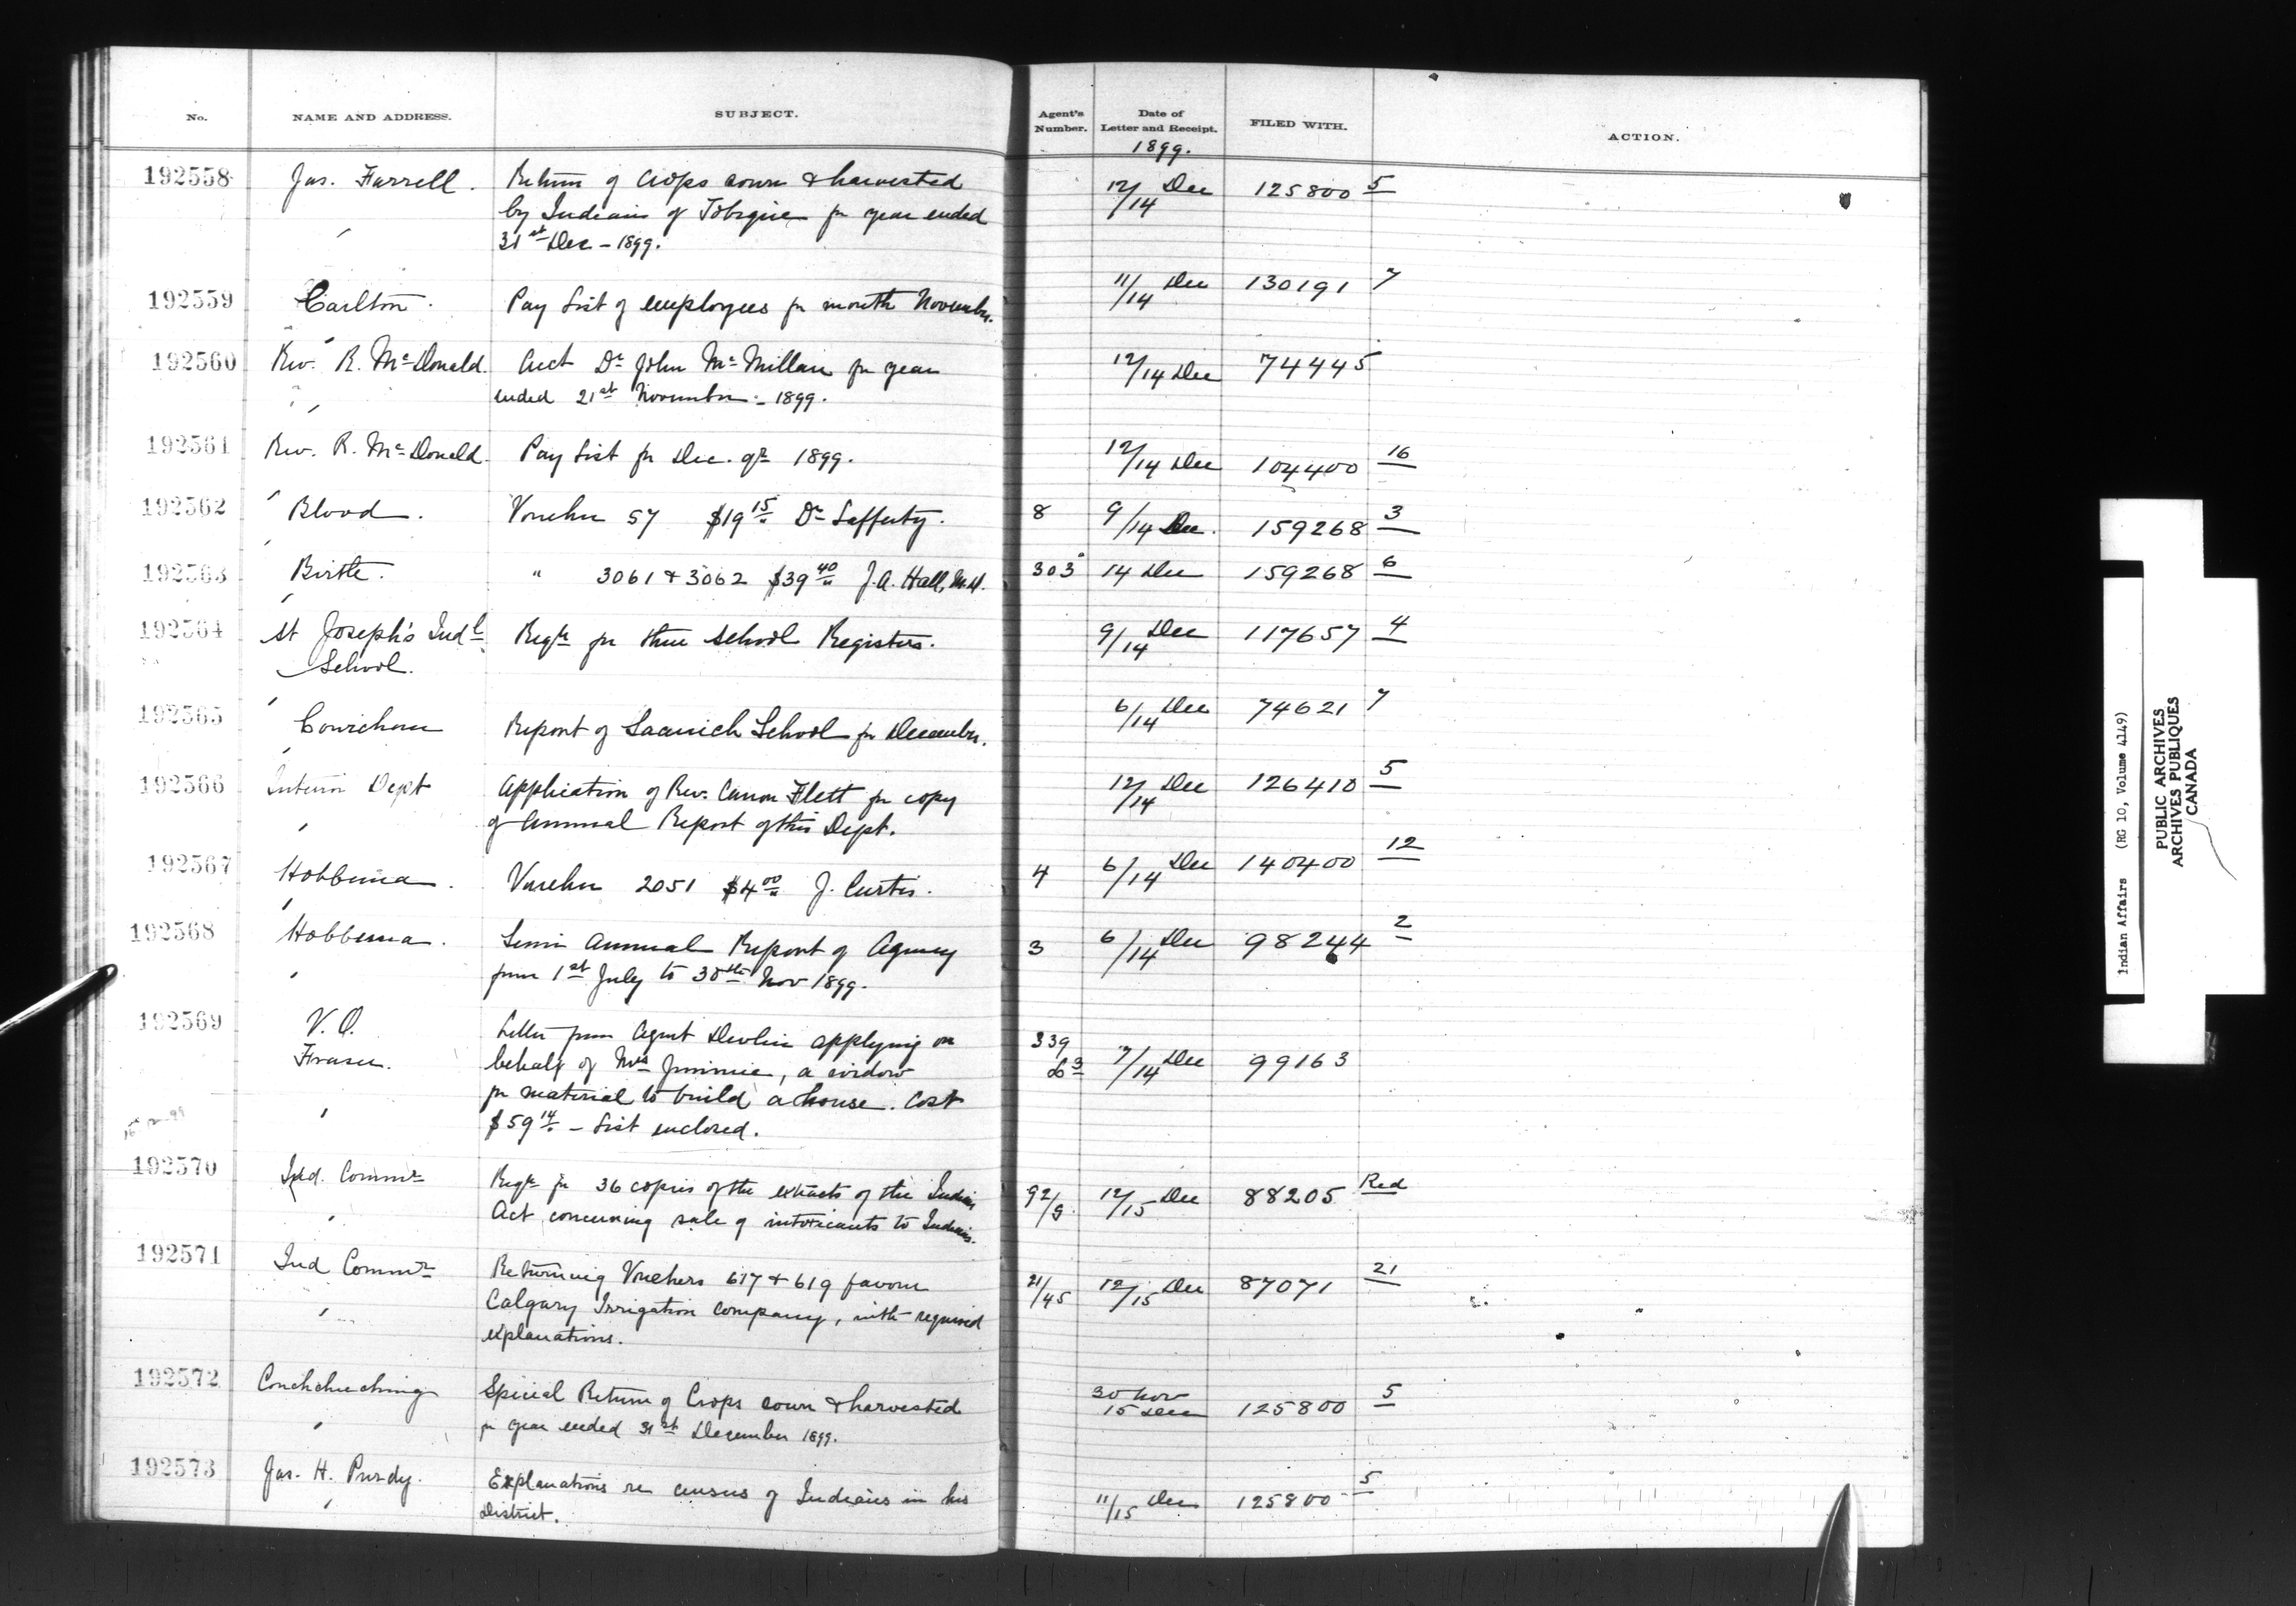 No. NAME AND ADDRESS. SUBJECT. Agent's Number. Date of Letter and Receipt. FILED WITH. ACTION.
1899.
192558 Jas. Farrell. Return of Crops sown & harvested 12/14 Dec 125800 5
by Indians of Tobique for year ended
31st Dec - 1899.
192559 Carlton. Pay List of employees for month November. 11/14 Dec 130191 7
192560 Rev. R. McDonald. Acct Dr John McMillan for year 12/14 Dec 74445
ended 21st November - 1899.
192561 Rev. R. McDonald. Pay List for Dec. qr 1899. 12/14 Dec 104400 16
192562 Blood. Voucher 57 $19 15 Dr Lafferty. 8 9/14 Dec. 159268 3
192563 Birtle. " 3061 & 3062 $39 40 J. A. Hall, M.D. 303 14 Dec 159268 6
192564 St Joseph's Indl Reqn for three school Registers. 9/14 Dec 117657 4
School.
192565 Cowichan Report of Saanich School for December. 6/14 Dec 74621 7
192566 Interior Dept Application of Rev. Canon Flett for copy 12/14 Dec 126410 5
of Annual Report of this Dept.
192567 Hobbema. Voucher 2051 $4 00 J. Curtis. 4 6/14 Dec 140400 12
192568 Hobbema. Semi Annual Report of Agency 3 6/14 Dec 98244 2
from 1st July to 30th Nov 1899.
192569 V. O. Letter from Agent Devlin applying on 339
Fraser. behalf of Mrs Jimmie, a widow 7/14 Dec 99163
for material to build a house. Cost
$59 14 - List enclosed.
192570 Ind. Commr Reqn for 36 copies of the extracts of the Indian 92/9 12/15 Dec 88205 Red
Act, concerning sale of intoxicants to Indians.
192571 Ind Commr Returning Vouchers 617 & 619 favour 21/45 12/15 Dec 87071 21
Calgary Irrigation Company, with required
explanations.
192572 Couchiching Special Return of Crops sown & harvested 30 Nov 15 Dec 125800 5
for year ended 31st December 1899.
192573 Jas. H. Purdy. Explanations re census of Indians in his 11/15 Dec 125800 5
District.
Indian Affairs (RG 10, Volume 4149)
PUBLIC ARCHIVES
ARCHIVES PUBLIQUES
CANADA